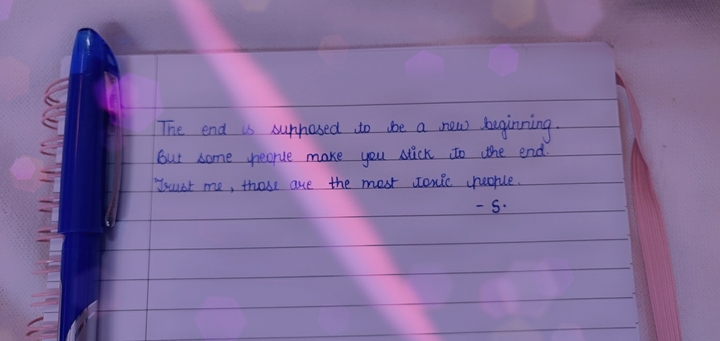 The end is supposed to be a new beginning.
But some people make you stick to the end.
Trust me, those are the most toxic people.
- S.